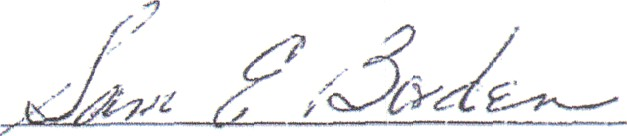 Sam E. Borden